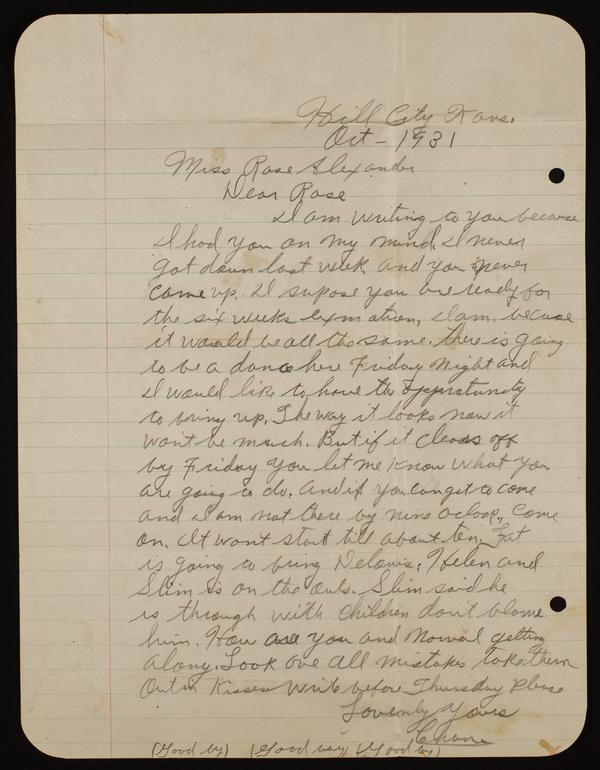 Hill City Kans.
Oct - 1931
Miss Rose Alexander
Dear Rose
I am writing to you because
I had you on my mind. I never
got down last week and you never
came up. I supose you are ready for
the six weeks exmation, I am. because
it would be all the same. there is going
to be a dance here Friday night and
I would like to have the oppratunity
to bring up. The way it looks now it
wont be much. But if it clears off
by Friday you let me know what you
are going to do. And if you can get to come
and I am not there by nine o'cloop, Come
on. It wont start till about ten. Fat
is going to bring Delouis. Helen and
Slim is on the outs. Slim said he
is through with children don't blame
him. How are you and Norval getting
along. Look ove all mistakes take them
Out in Kisses write before Thursday Please
Lovenly Yours
(Good by) (Good by) (Good by)